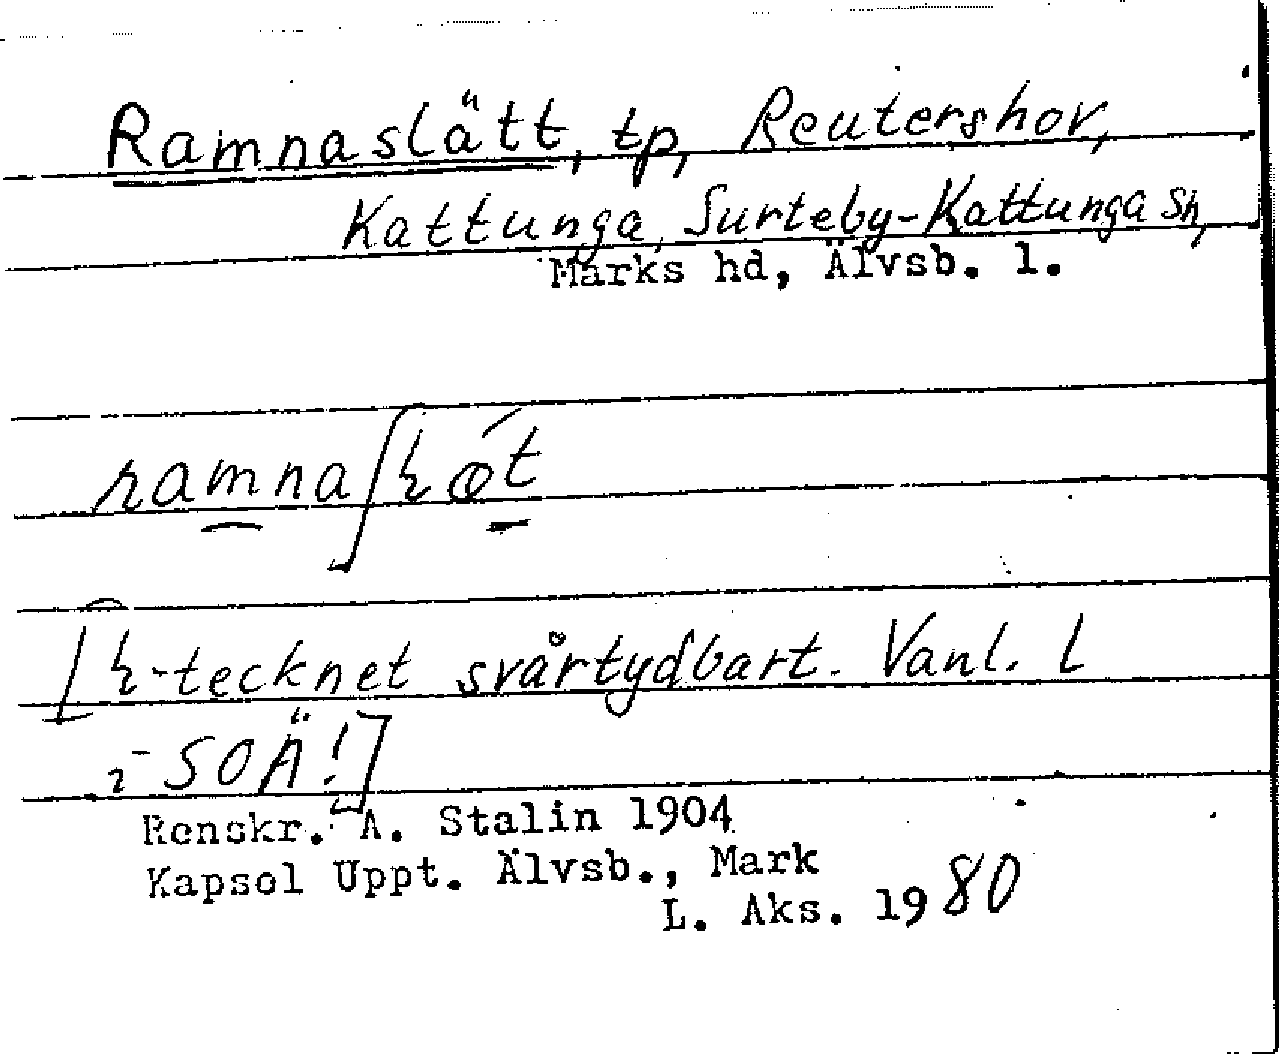 Ramnaslätt, tp, Reutershov,
Kattunga, Surteby-Kattunga sn,
Marks hd, Älvsb. l.
ramna
-tecknet svårtydbart. Vanl. l
i SOÄ!]
Renskr. A. Stalin 1904
Kapsel Uppt. Älvsb., Mark
L. Aks. 1980